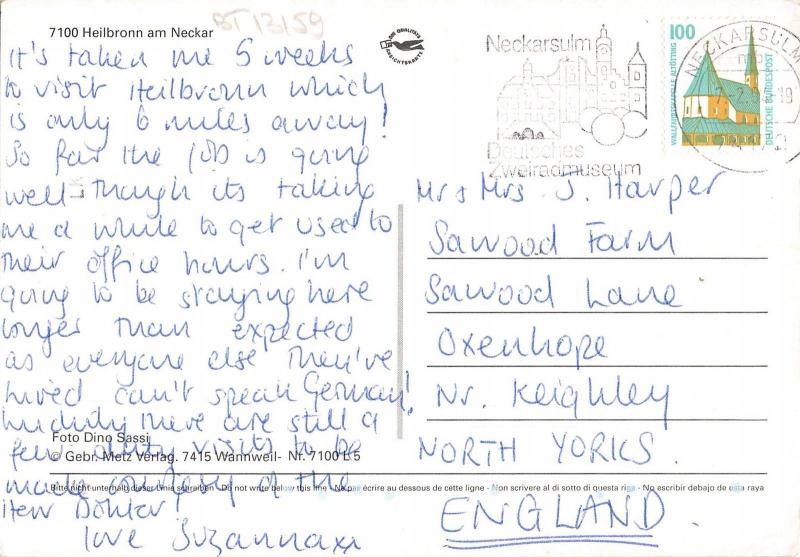 BT 13159
7100 Heilbronn am Neckar
DIE QUALITÄTS
ANSICHTSKARTE
It's taken me 5 weeks
to visit Heilbronn which
is only 6 miles away!
So far the job is going
well though its taking
me a while to get used to
their office hours. I'm
going to be staying here
longer than expected
as everyone else they've
hired can't speak German!
there are still a
few visits to be
made courtesy of the
Herr Doktor
love Suzanna xx
Foto Dino Sassi
© Gebr. Metz Verlag. 7415 Wannweil - Nr. 7100 L 5
Bitte nicht unterhalb dieser Linie schreiben - Do not write below this line - Ne pas écrire au dessous de cette ligne - Non scrivere al di sotto di questa riga - No escribir debajo de esta raya
Neckarsulm
Deutsches
Zweiradmuseum
100
WALLFAHRTSKAPELLE ALTÖTTING
DEUTSCHE BUNDESPOST
NECKARSULM
Mr & Mrs J. Harper
Sawood Farm
Sawood Lane
Oxenhope
Nr. Keighley
NORTH YORKS.
ENGLAND.